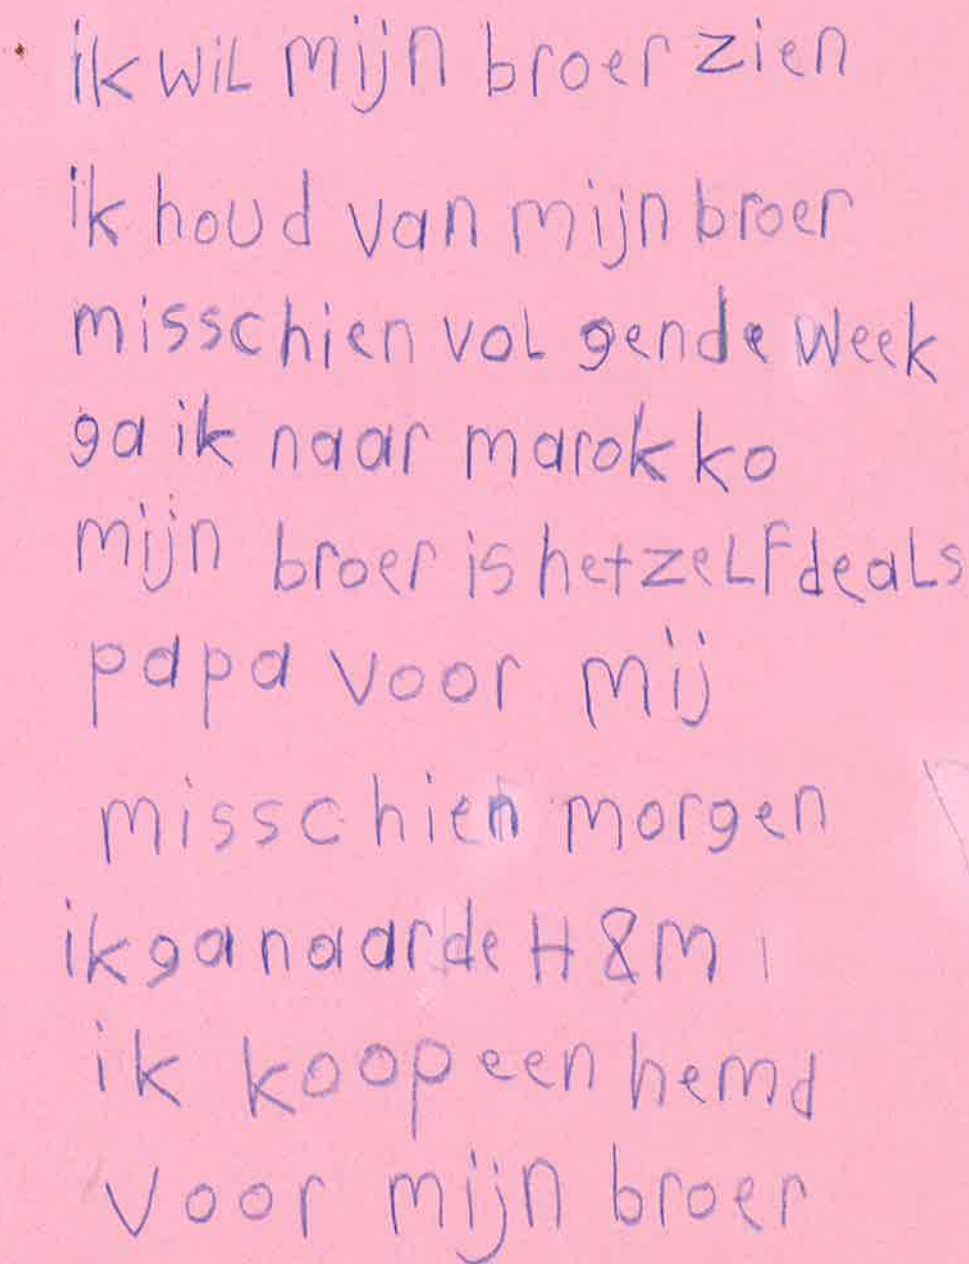 ik wil mijn broer zien
ik houd van mijn broer
misschien vol gende week
ga ik naar marokko
mijn broer is hetzelfde als
papa voor mij
misschien morgen
ik ga naar de H&M
ik koop een hemd
voor mijn broer